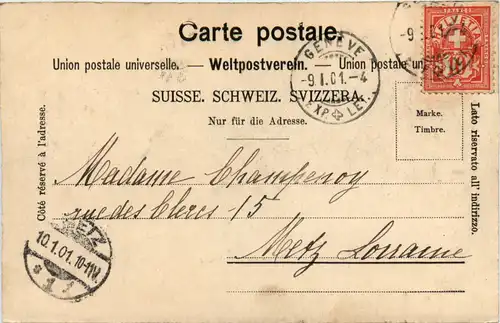 Carte postale.
Union postale universelle. — Weltpostverein. — Union postale
SUISSE. SCHWEIZ. SVIZZERA.
Nur für die Adresse.
GENÈVE
-9.I.01.-4
EXP. LET.
-9.
HELVETIA
10
Marke.
Timbre.
Côté réservé à l'adresse.
Lato riservato all' indirizzo.
Madame Champenoy
rue des Clercs 15
Metz Lorraine
METZ
10.1.01.10-11V.
* 1 f